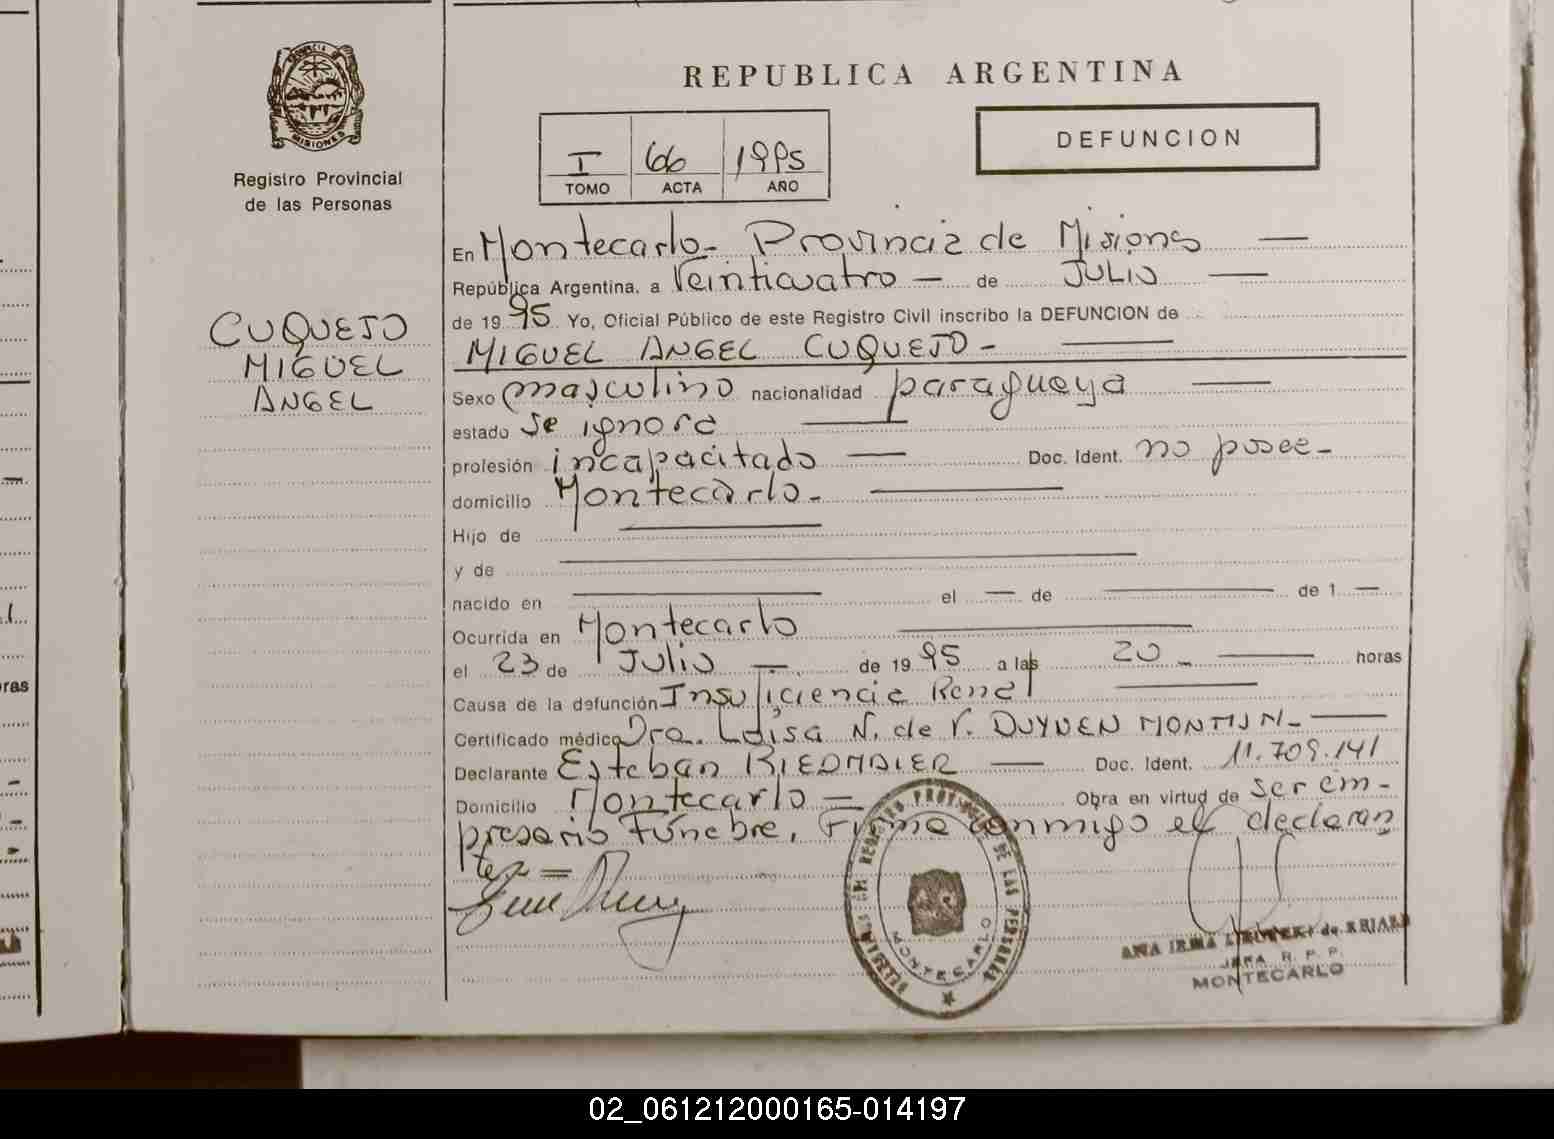 REPUBLICA ARGENTINA
PROVINCIA DE
MISIONES
Registro Provincial
de las Personas
I 66 1995
TOMO ACTA AÑO
DEFUNCION
CUQUEJO
MIGUEL
ANGEL
En Montecarlo- Provincia de Misiones —
República Argentina, a Veinticuatro — de JULIO —
de 1995 Yo, Oficial Público de este Registro Civil inscribo la DEFUNCION de
MIGUEL ANGEL CUQUEJO - —
Sexo masculino nacionalidad paraguaya —
estado se ignora —
profesión incapacitado — Doc. Ident. no posee-
domicilio Montecarlo- —
Hijo de —
y de —
nacido en — el — de — de 1 —
Ocurrida en Montecarlo —
el 23 de Julio — de 1995 a las 20 - — horas
Causa de la defunción Insuficiencia Renal —
Certificado médico Dra. Luisa N. de V. DUYVEN —
Declarante Esteban RIEDMAIER — Doc. Ident. 11.709.141
Domicilio Montecarlo — Obra en virtud de ser em-
presario Fúnebre, Firma conmigo el declaran
te.- =
MONTECARLO
ANA IRMA de
JEFA R. P. P.
MONTECARLO
ras
02_061212000165-014197